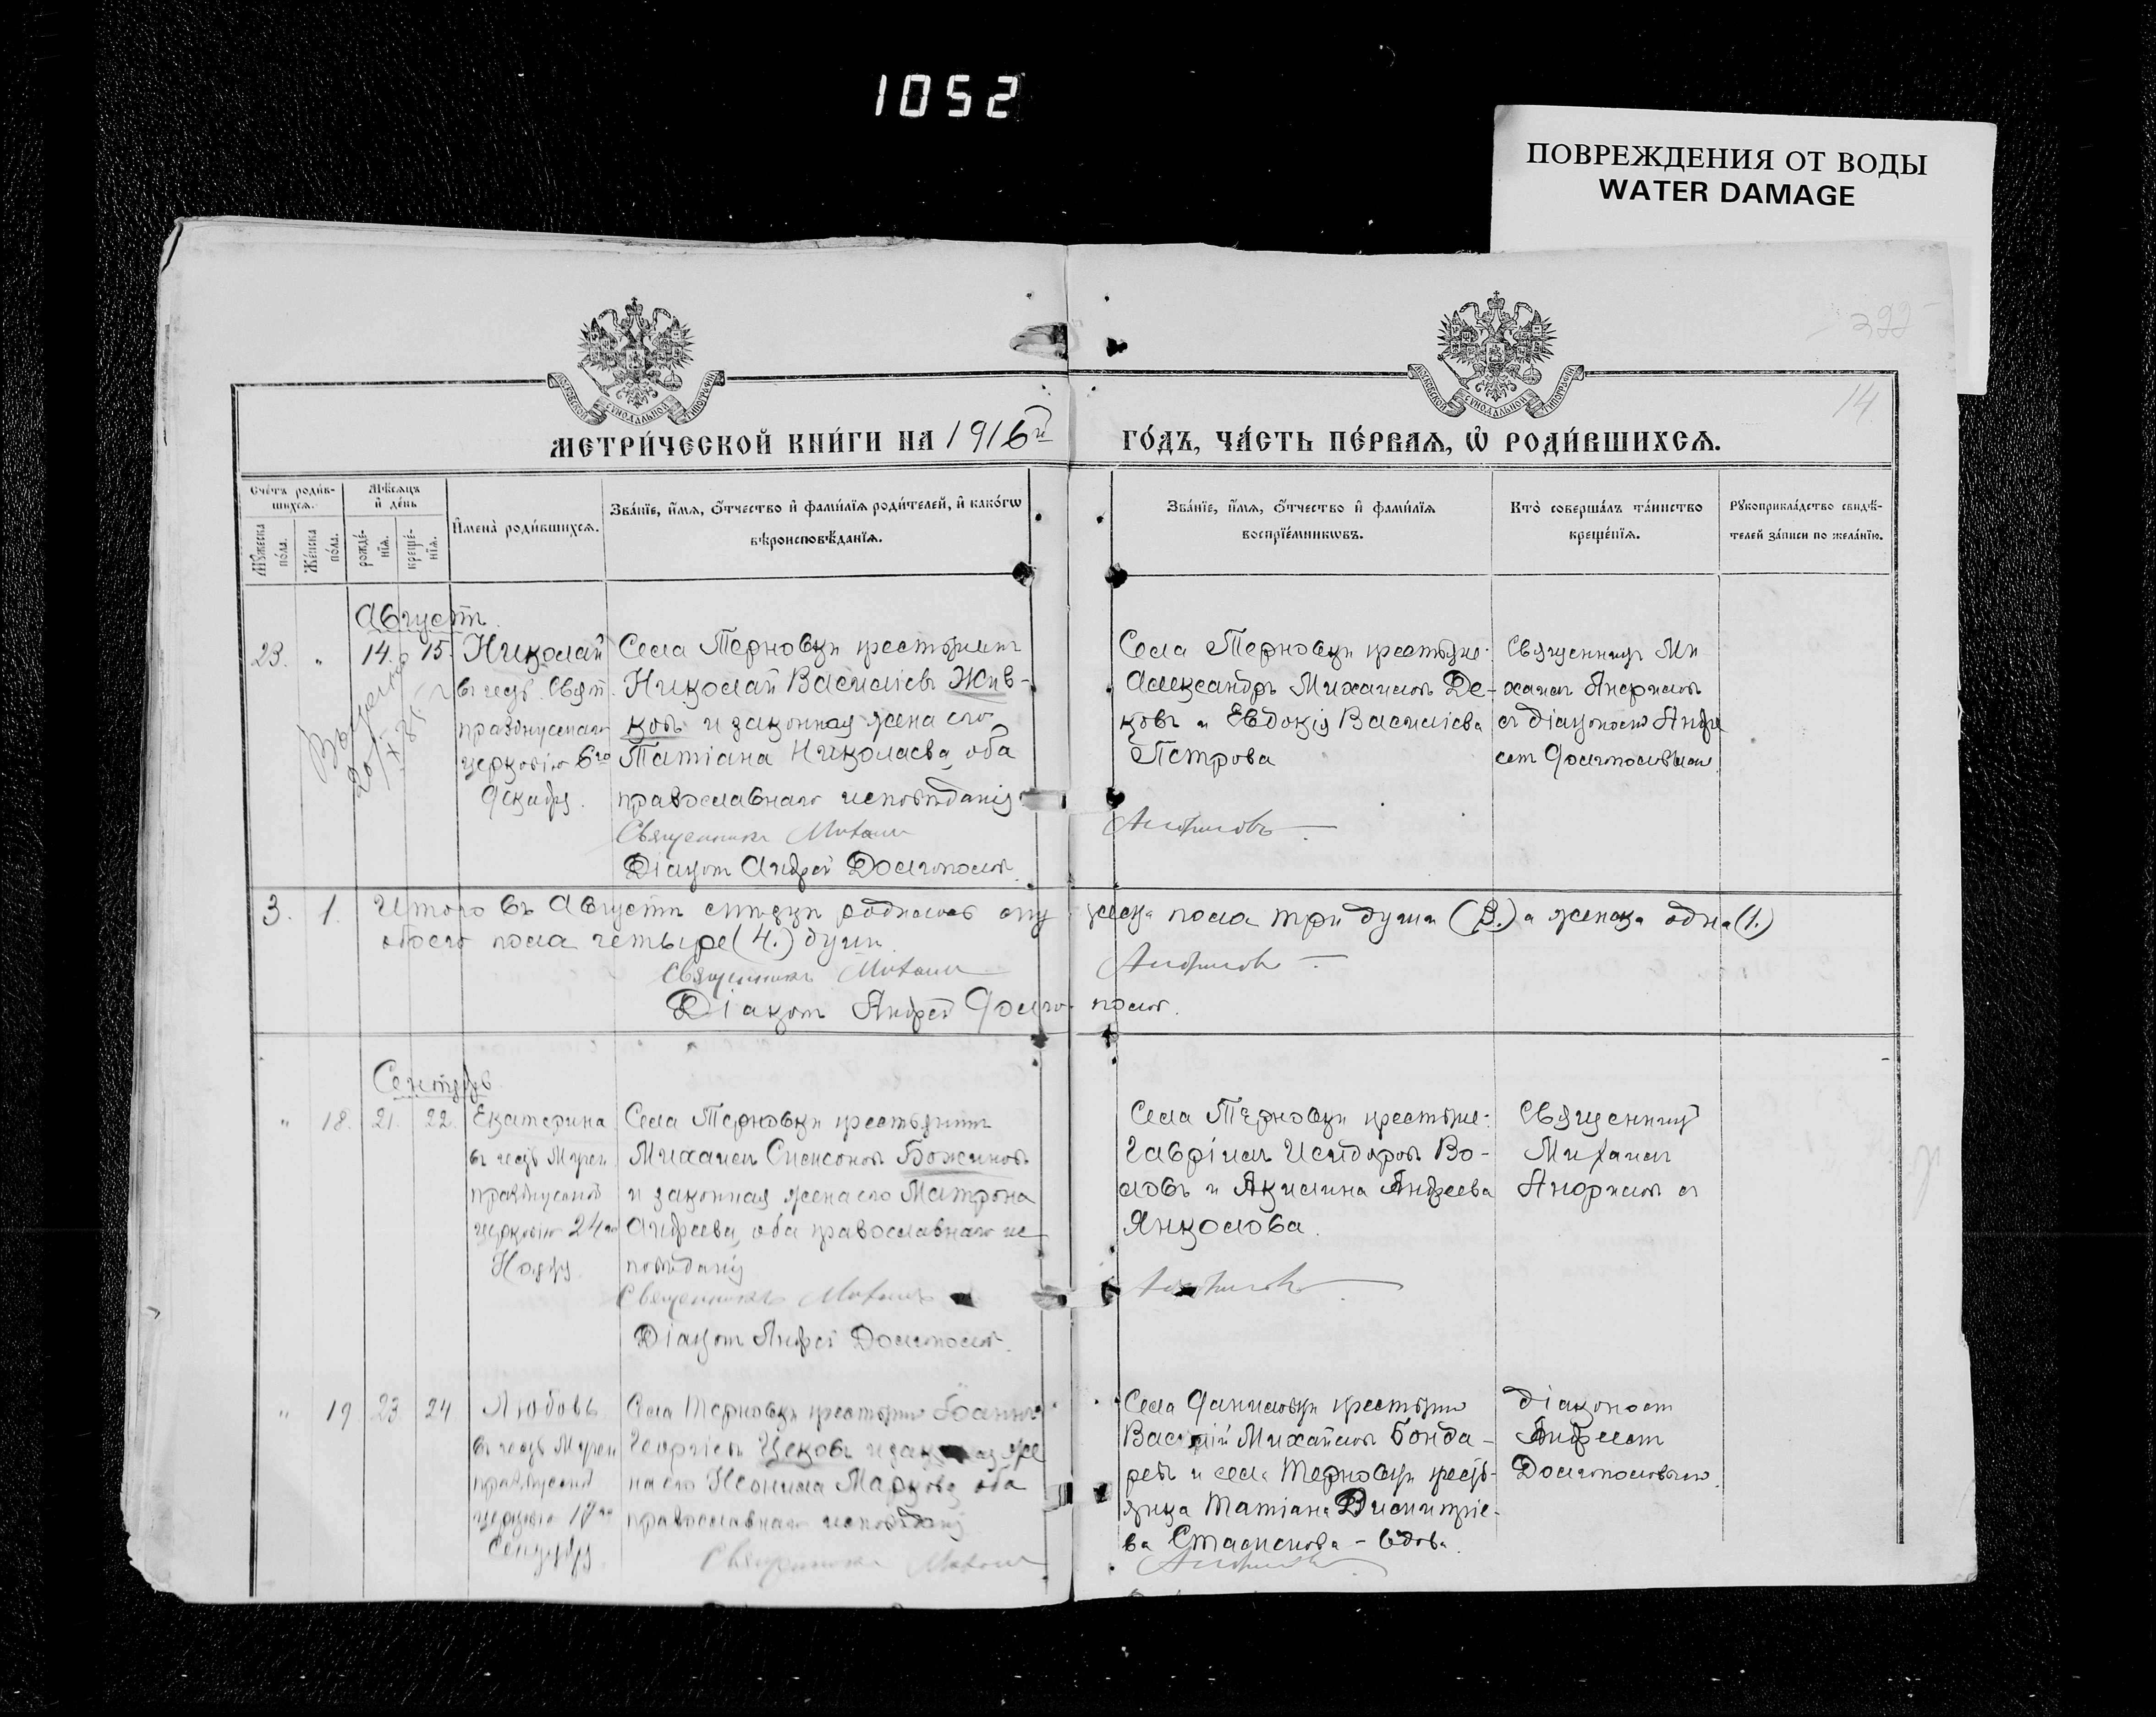 1052
ПОВРЕЖДЕНИЯ ОТ ВОДЫ
WATER DAMAGE
322
14
МЕТРИ́ЧЕСКОЙ КНИ́ГИ НА 1916й
ГО́ДЪ, ЧА́СТЬ ПЕ́РВАѦ, Ѽ РОДИ́ВШИХСѦ.
Сче́тъ роди́в-
шихсѧ.
Мꙋ́жеска по́ла.
Же́нска по́ла.
Мѣ́сѧцъ и҆ де́нь
рожде́-нїѧ.
креще́-нїѧ.
И҆мена̀ роди́вшихсѧ.
Зва́нїе, и҆́мѧ, ѻ҆́тчество и҆ фами́лїѧ роди́телей, и҆ како́гѡ
вѣроисповѣ́данїѧ.
Зва́нїе, и҆́мѧ, ѻ҆́тчество и҆ фами́лїѧ
воспрїе́мникѡвъ.
Кто̀ соверша́лъ та́инство
креще́нїѧ.
Рꙋкоприкла́дство свидѣ́-
телей за́писи по жела́нїю.
Августъ.
23. " 14. 15. Николай
въ честь Свят.
празднуемаго
церковію 6го
Декабря.
Села Терновки крестьянинъ
Николай Василіевъ Жив-
ковъ и законная жена его
Татіана Николаева, оба
православнаго исповѣданія
Священникъ Михаилъ
Діаконъ Андрей Долгополовъ.
Села Терновки крестьяне:
Александръ Михаиловъ Де-
ковъ и Евдокія Василіева
Петрова
Священникъ Ми
хаилъ Анфимовъ
съ діакономъ Андре
емъ Долгополовымъ.
Анфимовъ
3. 1. Итого въ Августѣ мѣсяцѣ родилось мужеска пола три души (3.) а женска одна (1.)
обоего пола четыре (4.) души.
Священникъ Михаилъ Анфимовъ
Діаконъ Андрей Долгополовъ.
Сентябрь
" 18. 21. 22. Екатерина
въ честь Мучен.
празднуемой
церковію 24го
Ноября.
Села Терновки крестьянинъ
Михаилъ Симеоновъ Божиновъ
и законная жена его Матрона
Андреева, оба православнаго ис
повѣданія
Священникъ Михаилъ
Діаконъ Андрей Долгополовъ.
Села Терновки крестьяне:
Гавріилъ Исидоровъ Во-
ловъ и Акилина Андреева
Янколова.
Священникъ
Михаилъ
Анфимовъ съ
Анфимовъ
" 19 23. 24 Любовь
въ честь Мучен
празднуемой
церковію 17го
Сентября.
Села Терновки крестьянинъ Іоаннъ
Георгіевъ Цековъ и законная же
на его Неонила Маркова, оба
православнаго исповѣданія
Священникъ Михаилъ
Села Даниловки крестьянинъ
Василій Михайловъ Бонда-
ревъ и села Терновки кресть-
янка Татіана Димитріе-
ва Стаматова - вдова.
Діакономъ
Андреемъ
Долгополовымъ.
Анфимовъ